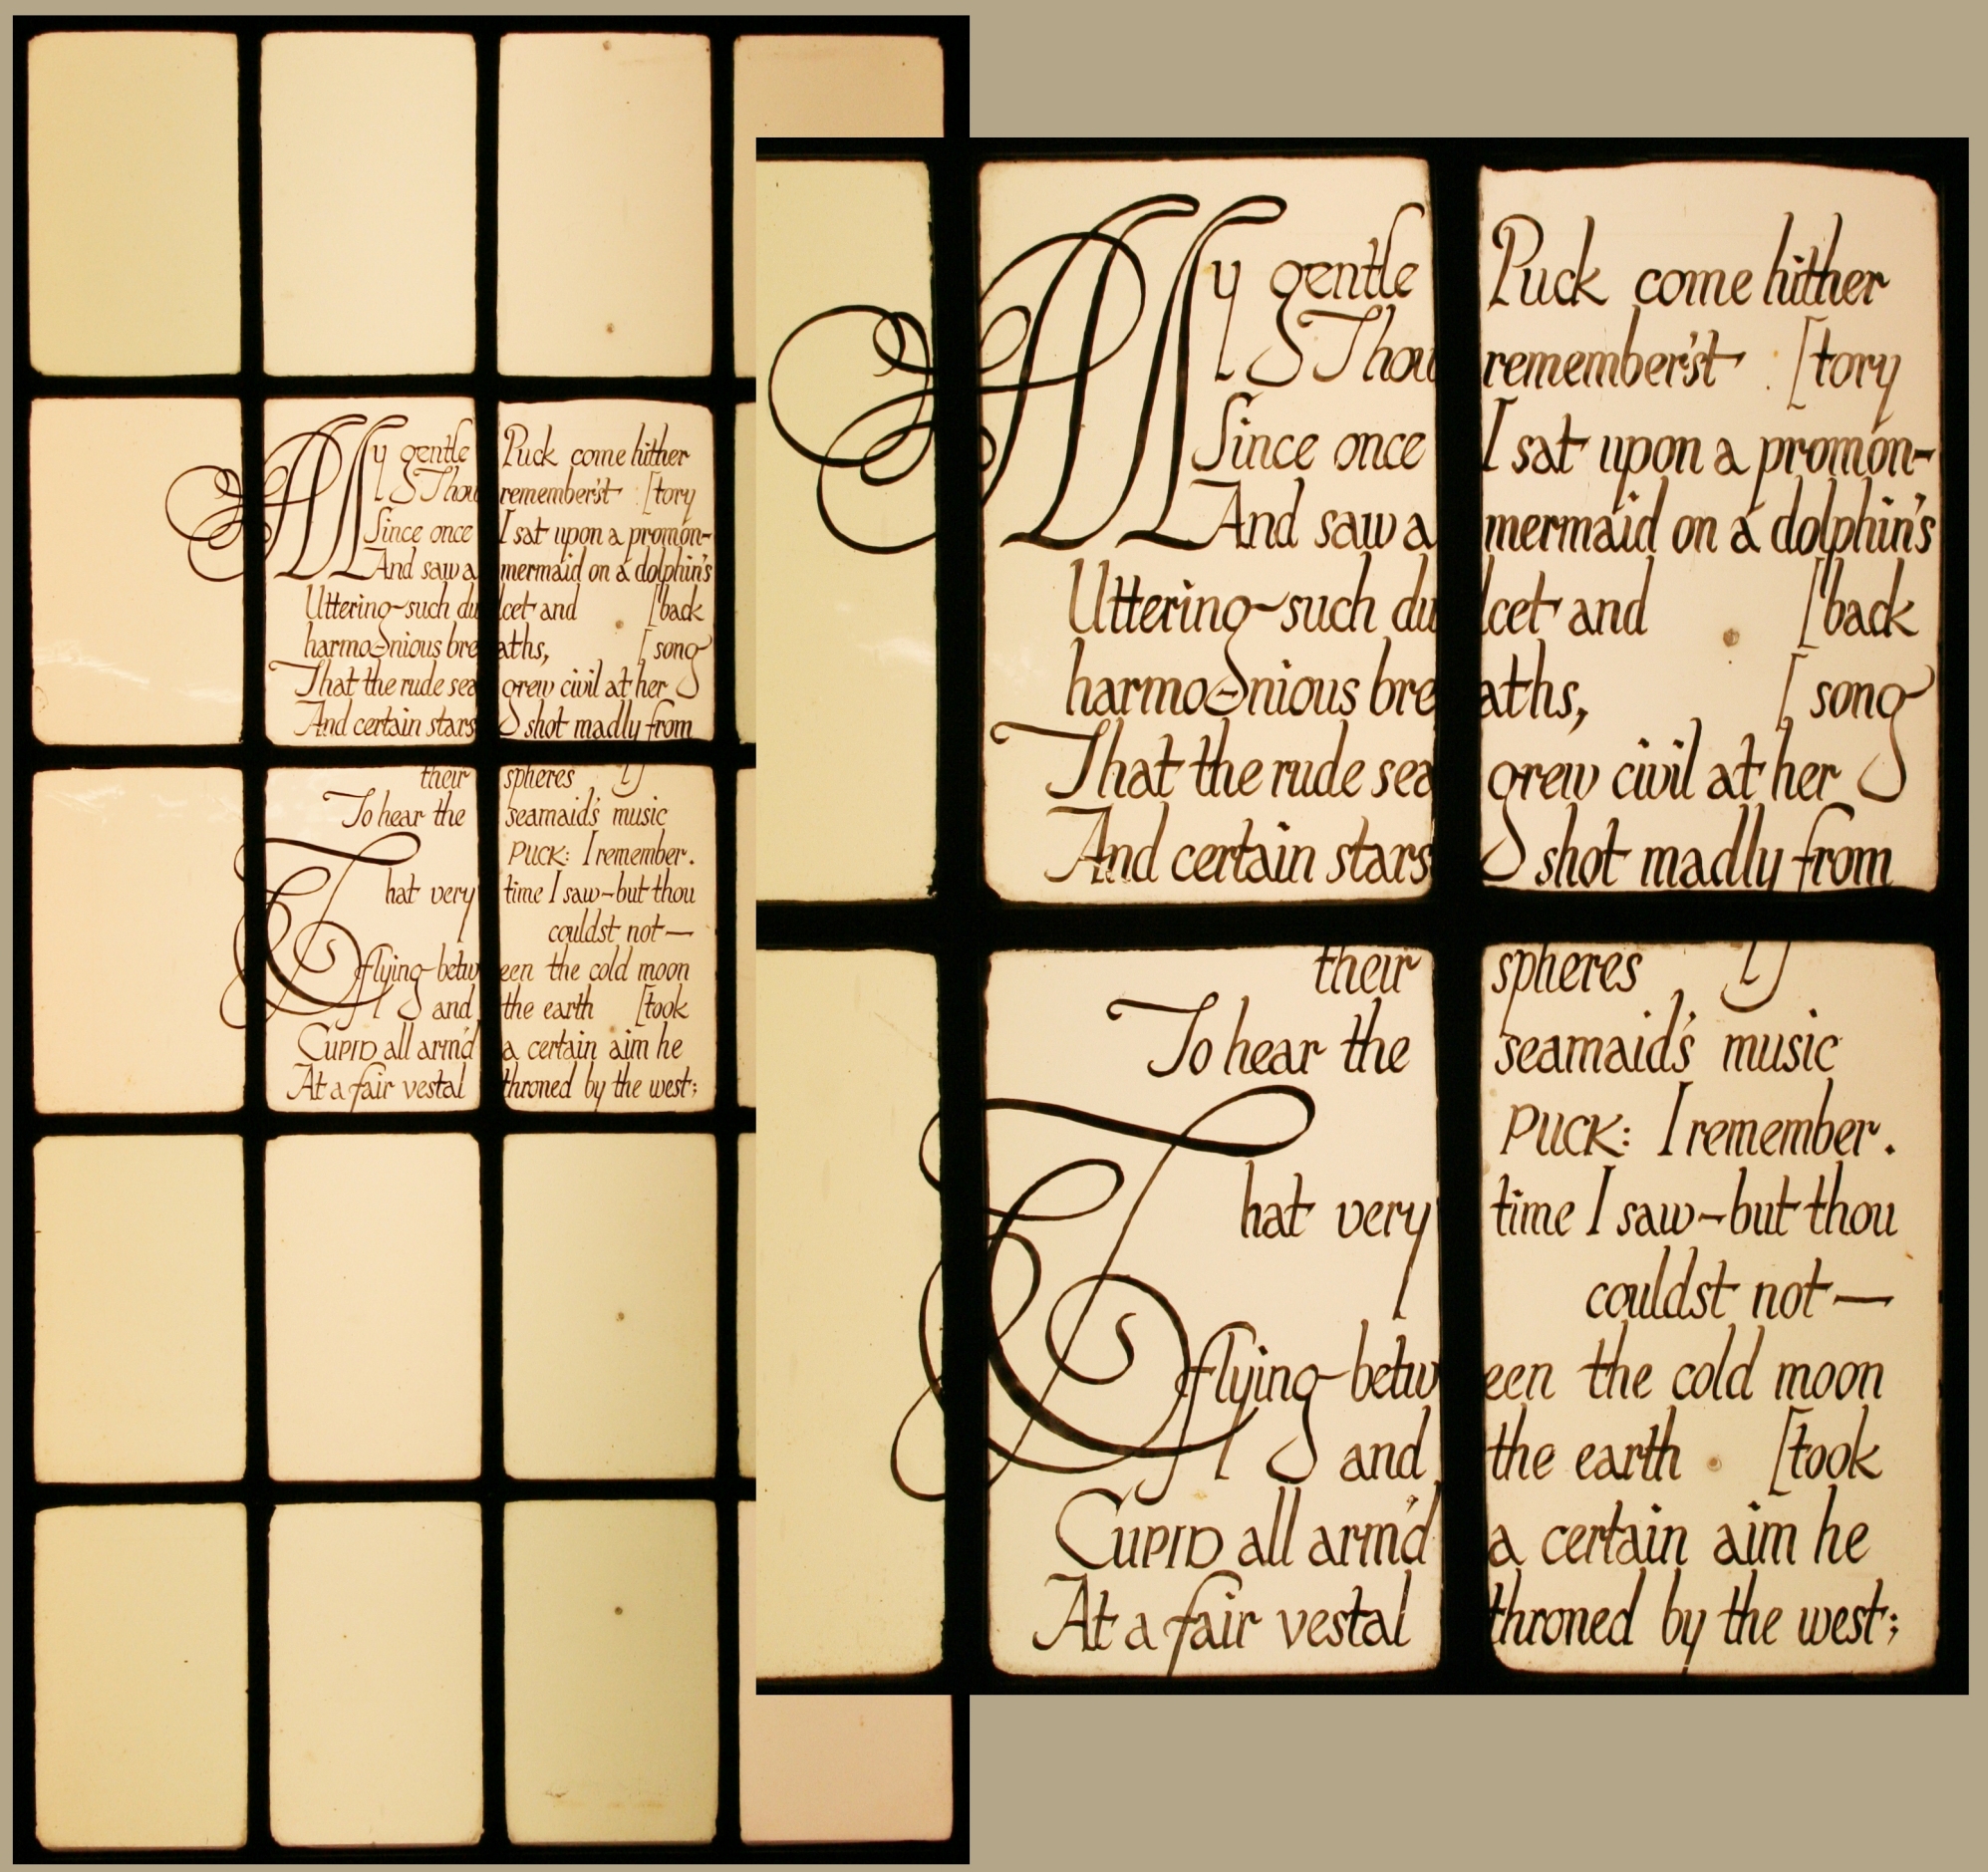 My gentle Puck come hither
Thou remember'st [tory
Since once I sat upon a promon-
And saw a mermaid on a dolphin's
Uttering such dulcet and [back
harmonious breaths, [song
That the rude sea grew civil at her
And certain stars shot madly from
their spheres
To hear the seamaid's music
PUCK: I remember.
That very time I saw-but thou
couldst not—
flying between the cold moon
and the earth [took
CUPID all arm'd a certain aim he
At a fair vestal throned by the west;
My gentle Puck come hither
Thou remember'st [tory
Since once I sat upon a promon-
And saw a mermaid on a dolphin's
Uttering such dulcet and [back
harmonious breaths, [song
That the rude sea grew civil at her
And certain stars shot madly from
their spheres
To hear the seamaid's music
PUCK: I remember.
That very time I saw-but thou
couldst not—
flying between the cold moon
and the earth [took
CUPID all arm'd a certain aim he
At a fair vestal throned by the west;